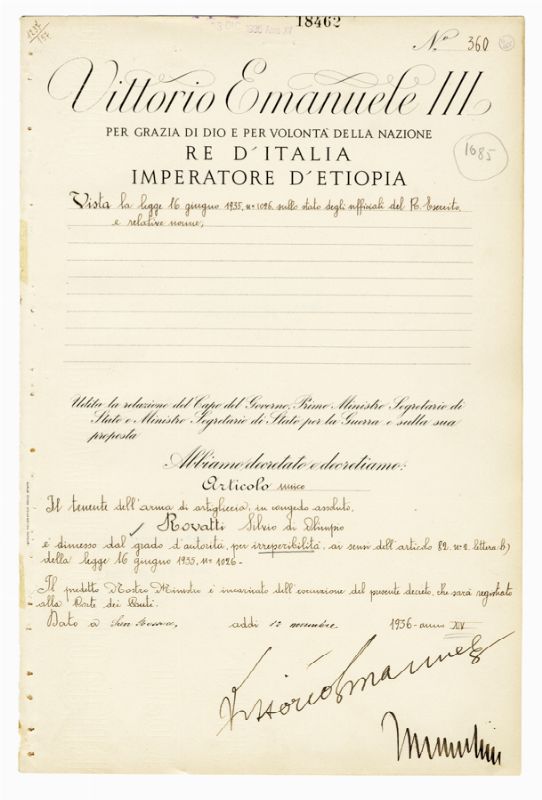 18462
3 DIC. 1936 Anno XV
N.º 360
Vittorio Emanuele III
PER GRAZIA DI DIO E PER VOLONTÀ DELLA NAZIONE
RE D'ITALIA
1085
IMPERATORE D'ETIOPIA
Vista la legge 16 giugno 1935, nº 1026 sullo stato degli ufficiali del R. Esercito
e relative norme;
Udita la relazione del Capo del Governo, Primo Ministro Segretario di
Stato e Ministro Segretario di Stato per la Guerra e sulla sua
proposta
Abbiamo decretato e decretiamo:
Articolo unico
Il tenente dell'arma di artiglieria, in congedo assoluto,
Rovatti Silvio di Olimpio
è dimesso dal grado d'autorità, per irreperibilità, ai sensi dell'articolo 82, nº 2, lettera b)
della legge 16 giugno 1935, Nº 1026 -
Il predetto Nostro Ministro è incaricato dell'esecuzione del presente decreto, che sarà registrato
alla Corte dei Conti.
Dato a San Rossore, addì 12 novembre 1936 - anno XV
Vittorio Emanuele
Mussolini